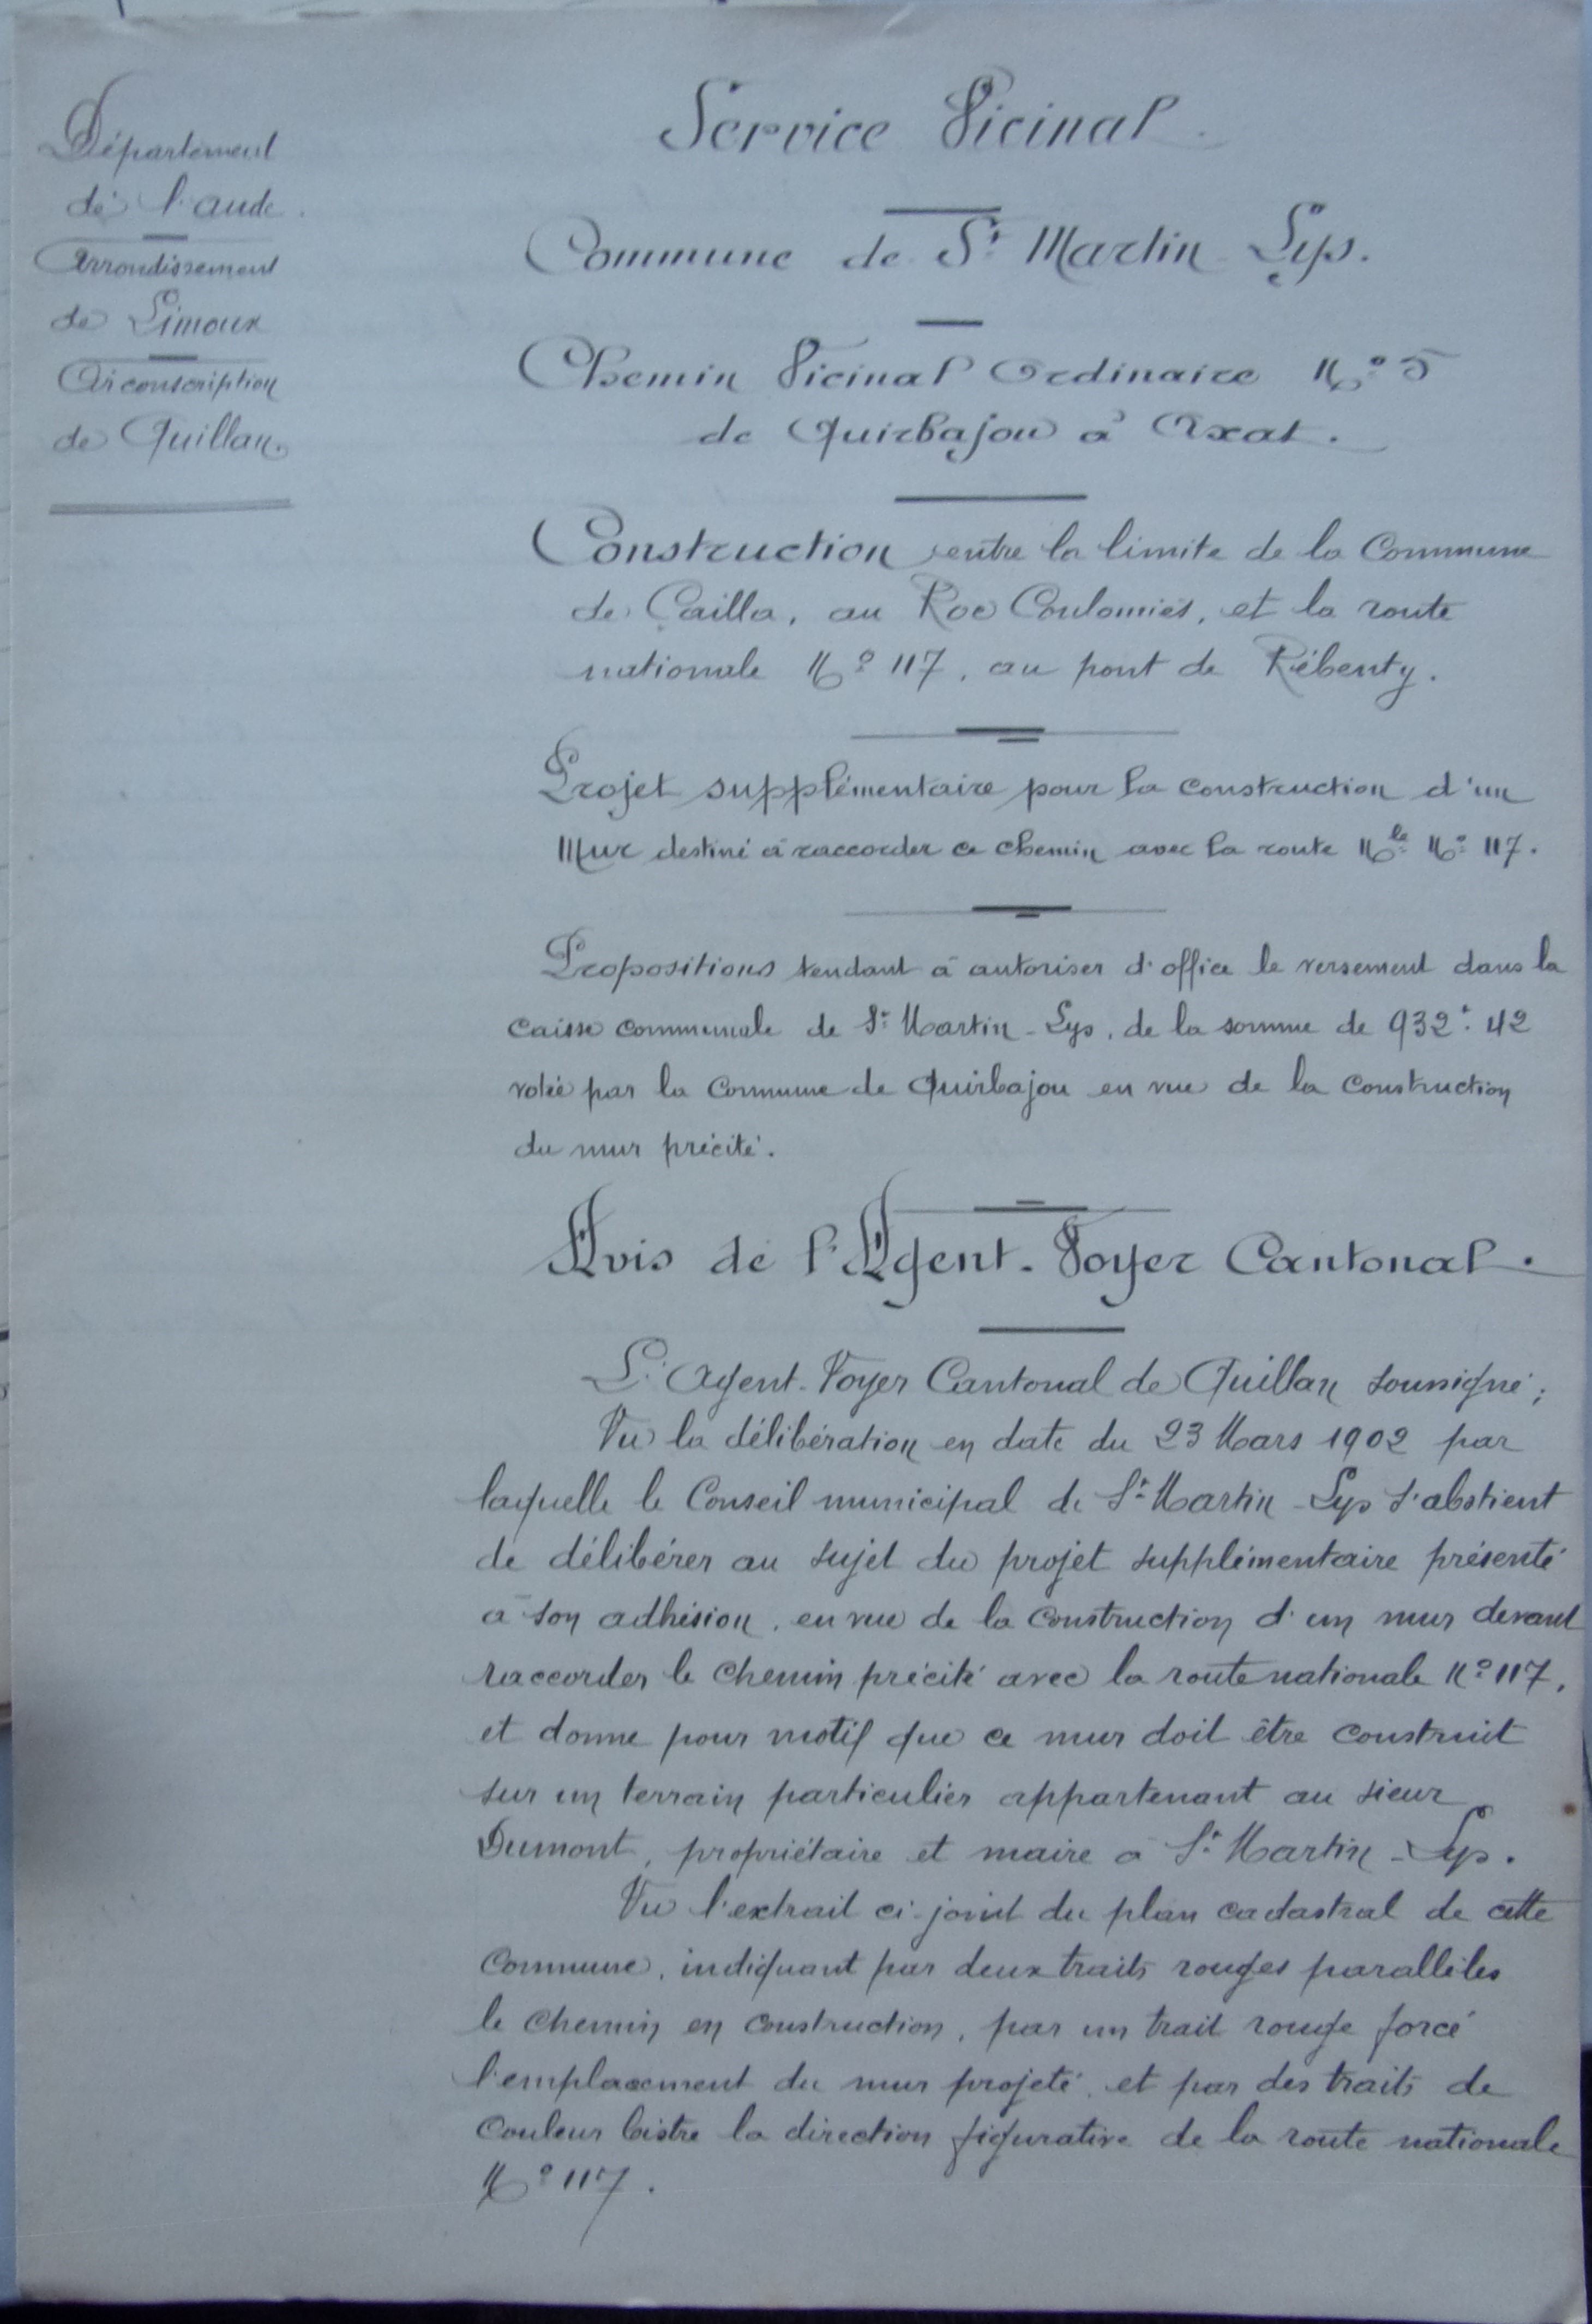 Département
de l'aude.
Arrondissement
de Limoux
Circonscription
de Quillan.
Service Vicinal.
Commune de St Martin Lys.
Chemin Vicinal Ordinaire No 5
de Quirbajou à Axat.
Construction entre la limite de la Commune
de Cailla, au Roc Coulomiés, et la route
nationale No 117, au pont de Rébenty.
Projet supplémentaire pour la construction d'un
Mur destiné à raccorder ce chemin avec la route Nle No 117.
Propositions tendant à autoriser d'office le versement dans la
caisse communale de St Martin-Lys, de la somme de 932f.42
votée par la Commune de Quirbajou en vue de la construction
du mur précité.
Avis de l'Agent-Voyer Cantonal.
L'Agent-Voyer Cantonal de Quillan soussigné;
Vu la délibération en date du 23 Mars 1902 par
laquelle le Conseil municipal de St Martin-Lys s'abstient
de délibérer au sujet du projet supplémentaire présenté
à son adhésion, en vue de la construction d'un mur devant
raccorder le chemin précité avec la route nationale No 117,
et donne pour motif que ce mur doit être construit
sur un terrain particulier appartenant au sieur
Dumont, propriétaire et maire à St Martin-Lys.
Vu l'extrait ci-joint du plan cadastral de cette
commune, indiquant par deux traits rouges parallèles
le chemin en construction, par un trait rouge forcé
l'emplacement du mur projeté, et par des traits de
couleur bistre la direction figurative de la route nationale
No 117.